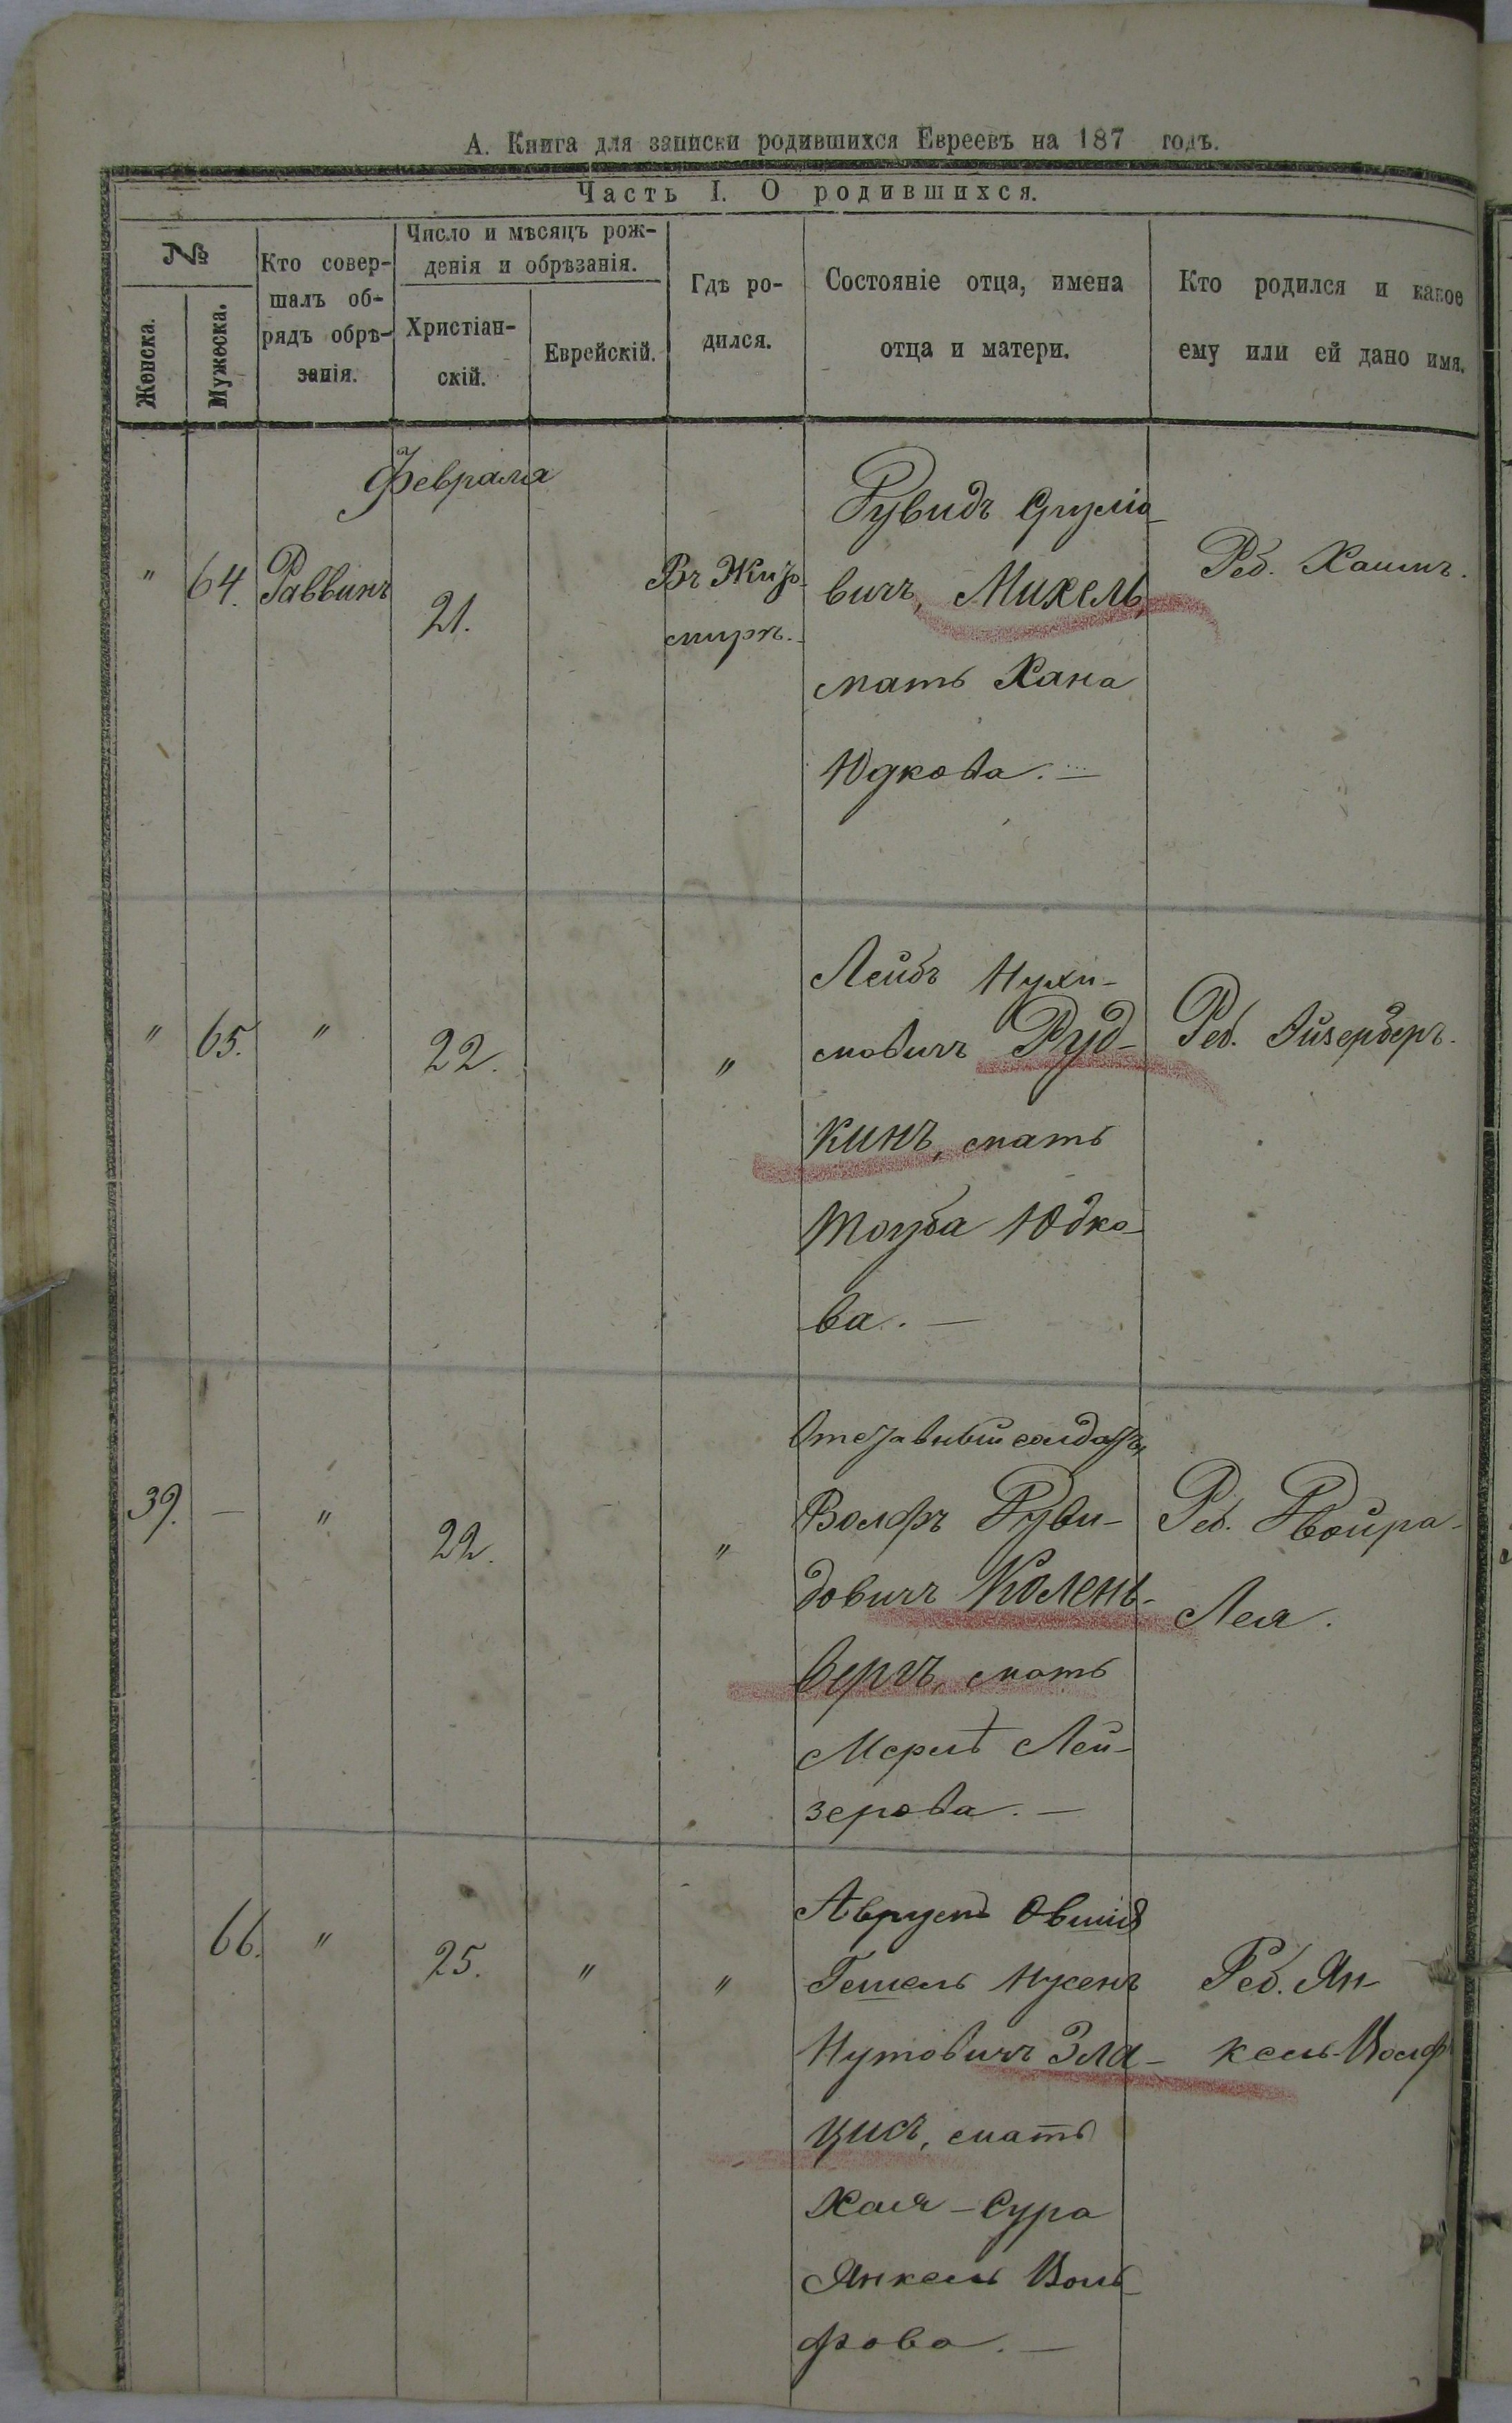 А. Книга для записки родившихся Евреевъ на 187 годъ.
Часть I. О родившихся.
№
Женска.
Мужеска.
Кто совер-
шалъ об-
рядъ обрѣ-
занія.
Число и мѣсяцъ рож-
денія и обрѣзанія.
Христіан-
скій.
Еврейскій.
Гдѣ ро-
дился.
Состояніе отца, имена
отца и матери.
Кто родился и какое
ему или ей дано имя.
Февраля
" 64. Раввинъ 21.
Въ Жито-
мирѣ.
Дувидъ Срулiо-
вичъ, Михель,
мать Хана
Юдкова. —
Реб. Хаимъ.
" 65. " 22. "
Лейбъ Нухи-
мовичъ Руд-
кинъ, мать
Тоуба Юдко-
ва. —
Реб. Айзерберъ.
39. — " 22. "
Отставный солдатъ,
Волфъ Дуви-
довичъ Колень-
бергъ, мать
Мерлѣ Лей-
зерова. —
Реб. Двойра-
Лея.
66. " 25. " "
Аврумъ Овшій
Гешель Нусенъ
Нутовичъ Зла-
цисъ, мать
Хая-Сура
Янкель Воль-
фова. —
Реб. Ян-
кель-Волф